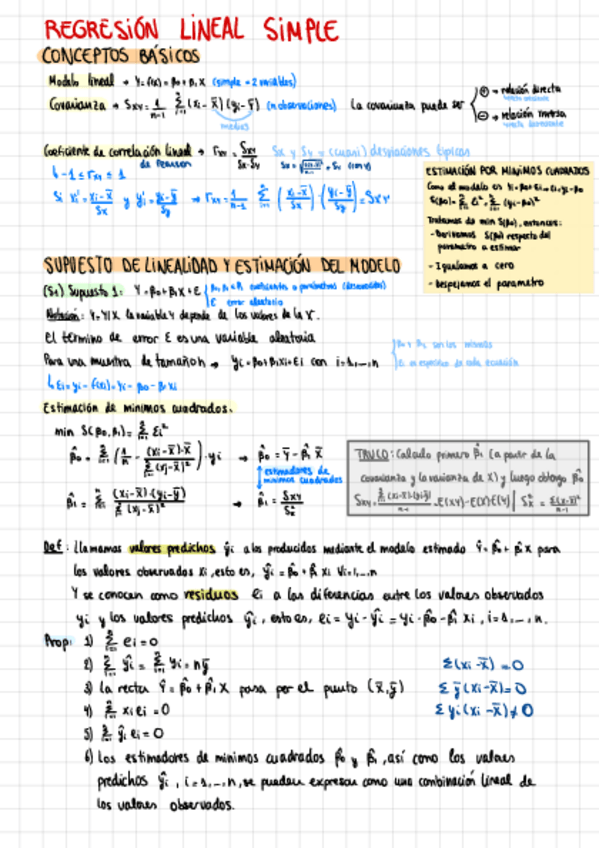 REGRESIÓN LINEAL SIMPLE
CONCEPTOS BÁSICOS
Modelo lineal → Y = f(x) = β₀ + β₁ X (simple = 2 variables)
Covarianza → Sxy = 1/(n-1) Σ (xi - x̄)(yi - ȳ) (n observaciones) La covarianza puede ser
medias
⊕ → relación directa
⊖ → relación inversa
Coeficiente de correlación lineal → rxy = Sxy/(Sx·Sy) Sx y Sy = (cuasi) desviaciones típicas
de Pearson
↳ -1 ≤ rxy ≤ 1
Si xi' = (xi - x̄)/Sx y yi' = (yi - ȳ)/Sy → rxy = 1/(n-1) Σ ((xi - x̄)/Sx)·((yi - ȳ)/Sy) = Sx'y'
ESTIMACIÓN POR MINIMOS CUADRADOS
Como el modelo es
Tratamos de min S(β₀), entonces:
- Derivamos S(β₀) respecto del
parametro a estimar
- Igualamos a cero
- Despejamos el parametro
SUPUESTO DE LINEALIDAD Y ESTIMACIÓN DEL MODELO
(S1) Supuesto 1: Y = β₀ + β₁X + ε
coeficientes o parámetros
ε error aleatorio
Notación: Y = Y|X la variable Y depende de los valores de la X.
El término de error ε es una variable aleatoria
Para una muestra de tamaño n → yi = β₀ + β₁xi + εi con i = 1, ..., n
β₀ y β₁ son los mismos
εi es específico de cada ecuación
↳ εi = yi - f(xi) = yi - β₀ - β₁xi
Estimación de minimos cuadrados.
min S(β₀, β₁) = Σ εi²
β̂₀ = Σ (1/n - (xi - x̄)·x̄ / Σ(xj - x̄)²)·yi → β̂₀ = ȳ - β̂₁ x̄
estimadores de
minimos cuadrados
β̂₁ = Σ (xi - x̄)·(yi - ȳ) / Σ(xj - x̄)² → β̂₁ = Sxy/Sx²
TRUCO: Calculo primero β̂₁ (a partir de la
covarianza y la varianza de X) y luego obtengo β̂₀
Sxy = Σ(xi - x̄)(yi - ȳ)/(n-1) = E(XY) - E(X)E(Y) | Sx² = Σ(x - x̄)²/(n-1)
Def: Llamamos valores predichos ŷi a los producidos mediante el modelo estimado Ŷ = β̂₀ + β̂₁X para
los valores observados xi, esto es, ŷi = β̂₀ + β̂₁ xi ∀i = 1, ..., n
Y se conocen como residuos ei a las diferencias entre los valores observados
yi y los valores predichos ŷi, esto es, ei = yi - ŷi = yi - β̂₀ - β̂₁ xi, i = 1, ..., n.
Prop: 1) Σ ei = 0
2) Σ ŷi = Σ yi = nȳ
3) la recta Ŷ = β̂₀ + β̂₁X pasa por el punto (x̄, ȳ)
4) Σ xi ei = 0
5) Σ ŷi ei = 0
Σ(xi - x̄) = 0
Σ ȳ(xi - x̄) = 0
Σ yi(xi - x̄) ≠ 0
6) Los estimadores de minimos cuadrados β̂₀ y β̂₁, así como los valores
predichos ŷi, i = 1, ..., n, se pueden expresar como una combinación lineal de
los valores observados.